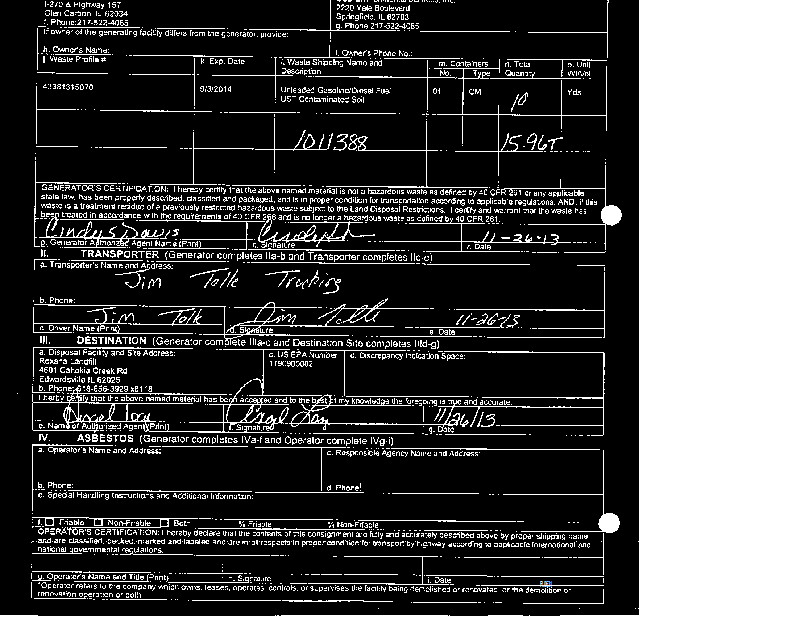 I-270 & Highway 157
Glen Carbon, IL 62034
f. Phone: 217-522-4085
2220 Yale Boulevard
Springfield, IL 62703
g. Phone 217-522-4085
If owner of the generating facility differs from the generator, provide:
h. Owner's Name: i. Owner's Phone No.:
j. Waste Profile # k. Exp. Date l. Waste Shipping Name and Description m. Containers No. Type n. Total Quantity o. Unit Wt/Vol
9/3/2014 Unleaded Gasoline/Diesel Fuel UST Contaminated Soil 01 CM 10 Yds
1011388 15.96T
GENERATOR'S CERTIFICATION: I hereby certify that the above named material is not a hazardous waste as defined by 40 CFR 261 or any applicable
state law, has been properly described, classified and packaged, and is in proper condition for transportation according to applicable regulations. AND, if this
waste is a treatment residue of a previously restricted hazardous waste subject to the Land Disposal Restrictions. I certify and warrant that the waste has
been treated in accordance with the requirements of 40 CFR 268 and is no longer a hazardous waste as defined by 40 CFR 261.
Cindy S Davis 11-26-13
p. Generator Authorized Agent Name (Print) q. Signature r. Date
II. TRANSPORTER (Generator completes IIa-b and Transporter completes IIc-e)
a. Transporter's Name and Address:
Jim Talk Trucking
b. Phone:
Jim Talk 11-26-13
c. Driver Name (Print) d. Signature e. Date
III. DESTINATION (Generator complete IIIa-c and Destination Site completes IIId-g)
a. Disposal Facility and Site Address: c. US EPA Number d. Discrepancy Indication Space:
Roxana Landfill
4601 Cahokia Creek Rd
Edwardsville IL 62025
b. Phone: 618-656-3929 x8118
I hereby certify that the above named material has been accepted and to the best of my knowledge the foregoing is true and accurate.
11/26/13
e. Name of Authorized Agent (Print) f. Signature g. Date
IV. ASBESTOS (Generator completes IVa-f and Operator complete IVg-i)
a. Operator's Name and Address: c. Responsible Agency Name and Address:
b. Phone: d. Phone:
e. Special Handling Instructions and Additional Information:
f. Friable Non-Friable Both % Friable % Non-Friable
OPERATOR'S CERTIFICATION: I hereby declare that the contents of this consignment are fully and accurately described above by proper shipping name
and are classified, packed, marked and labeled and are in all respects in proper condition for transport by highway according to applicable international and
national governmental regulations.
g. Operator's Name and Title (Print) h. Signature i. Date
*Operator refers to the company which owns, leases, operates, controls, or supervises the facility being demolished or renovated, or the demolition or
renovation operation or both